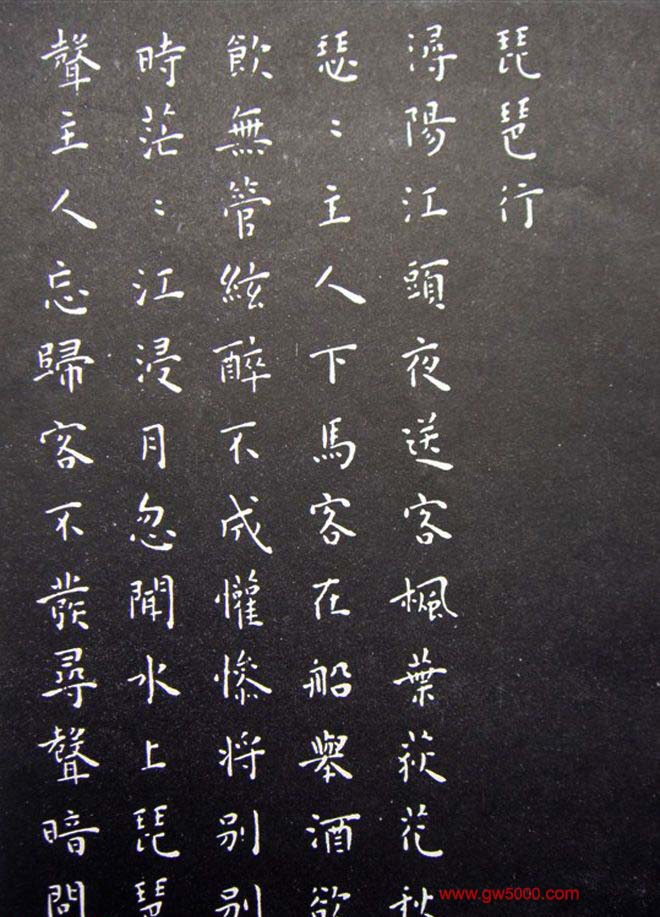 琵琶行
潯陽江頭夜送客楓葉荻花秋
瑟〻主人下馬客在船舉酒欲
飲無管絃醉不成懽慘将别别
時茫〻江浸月忽聞水上琵琶
聲主人忘歸客不發尋聲暗問
www.gw5000.com